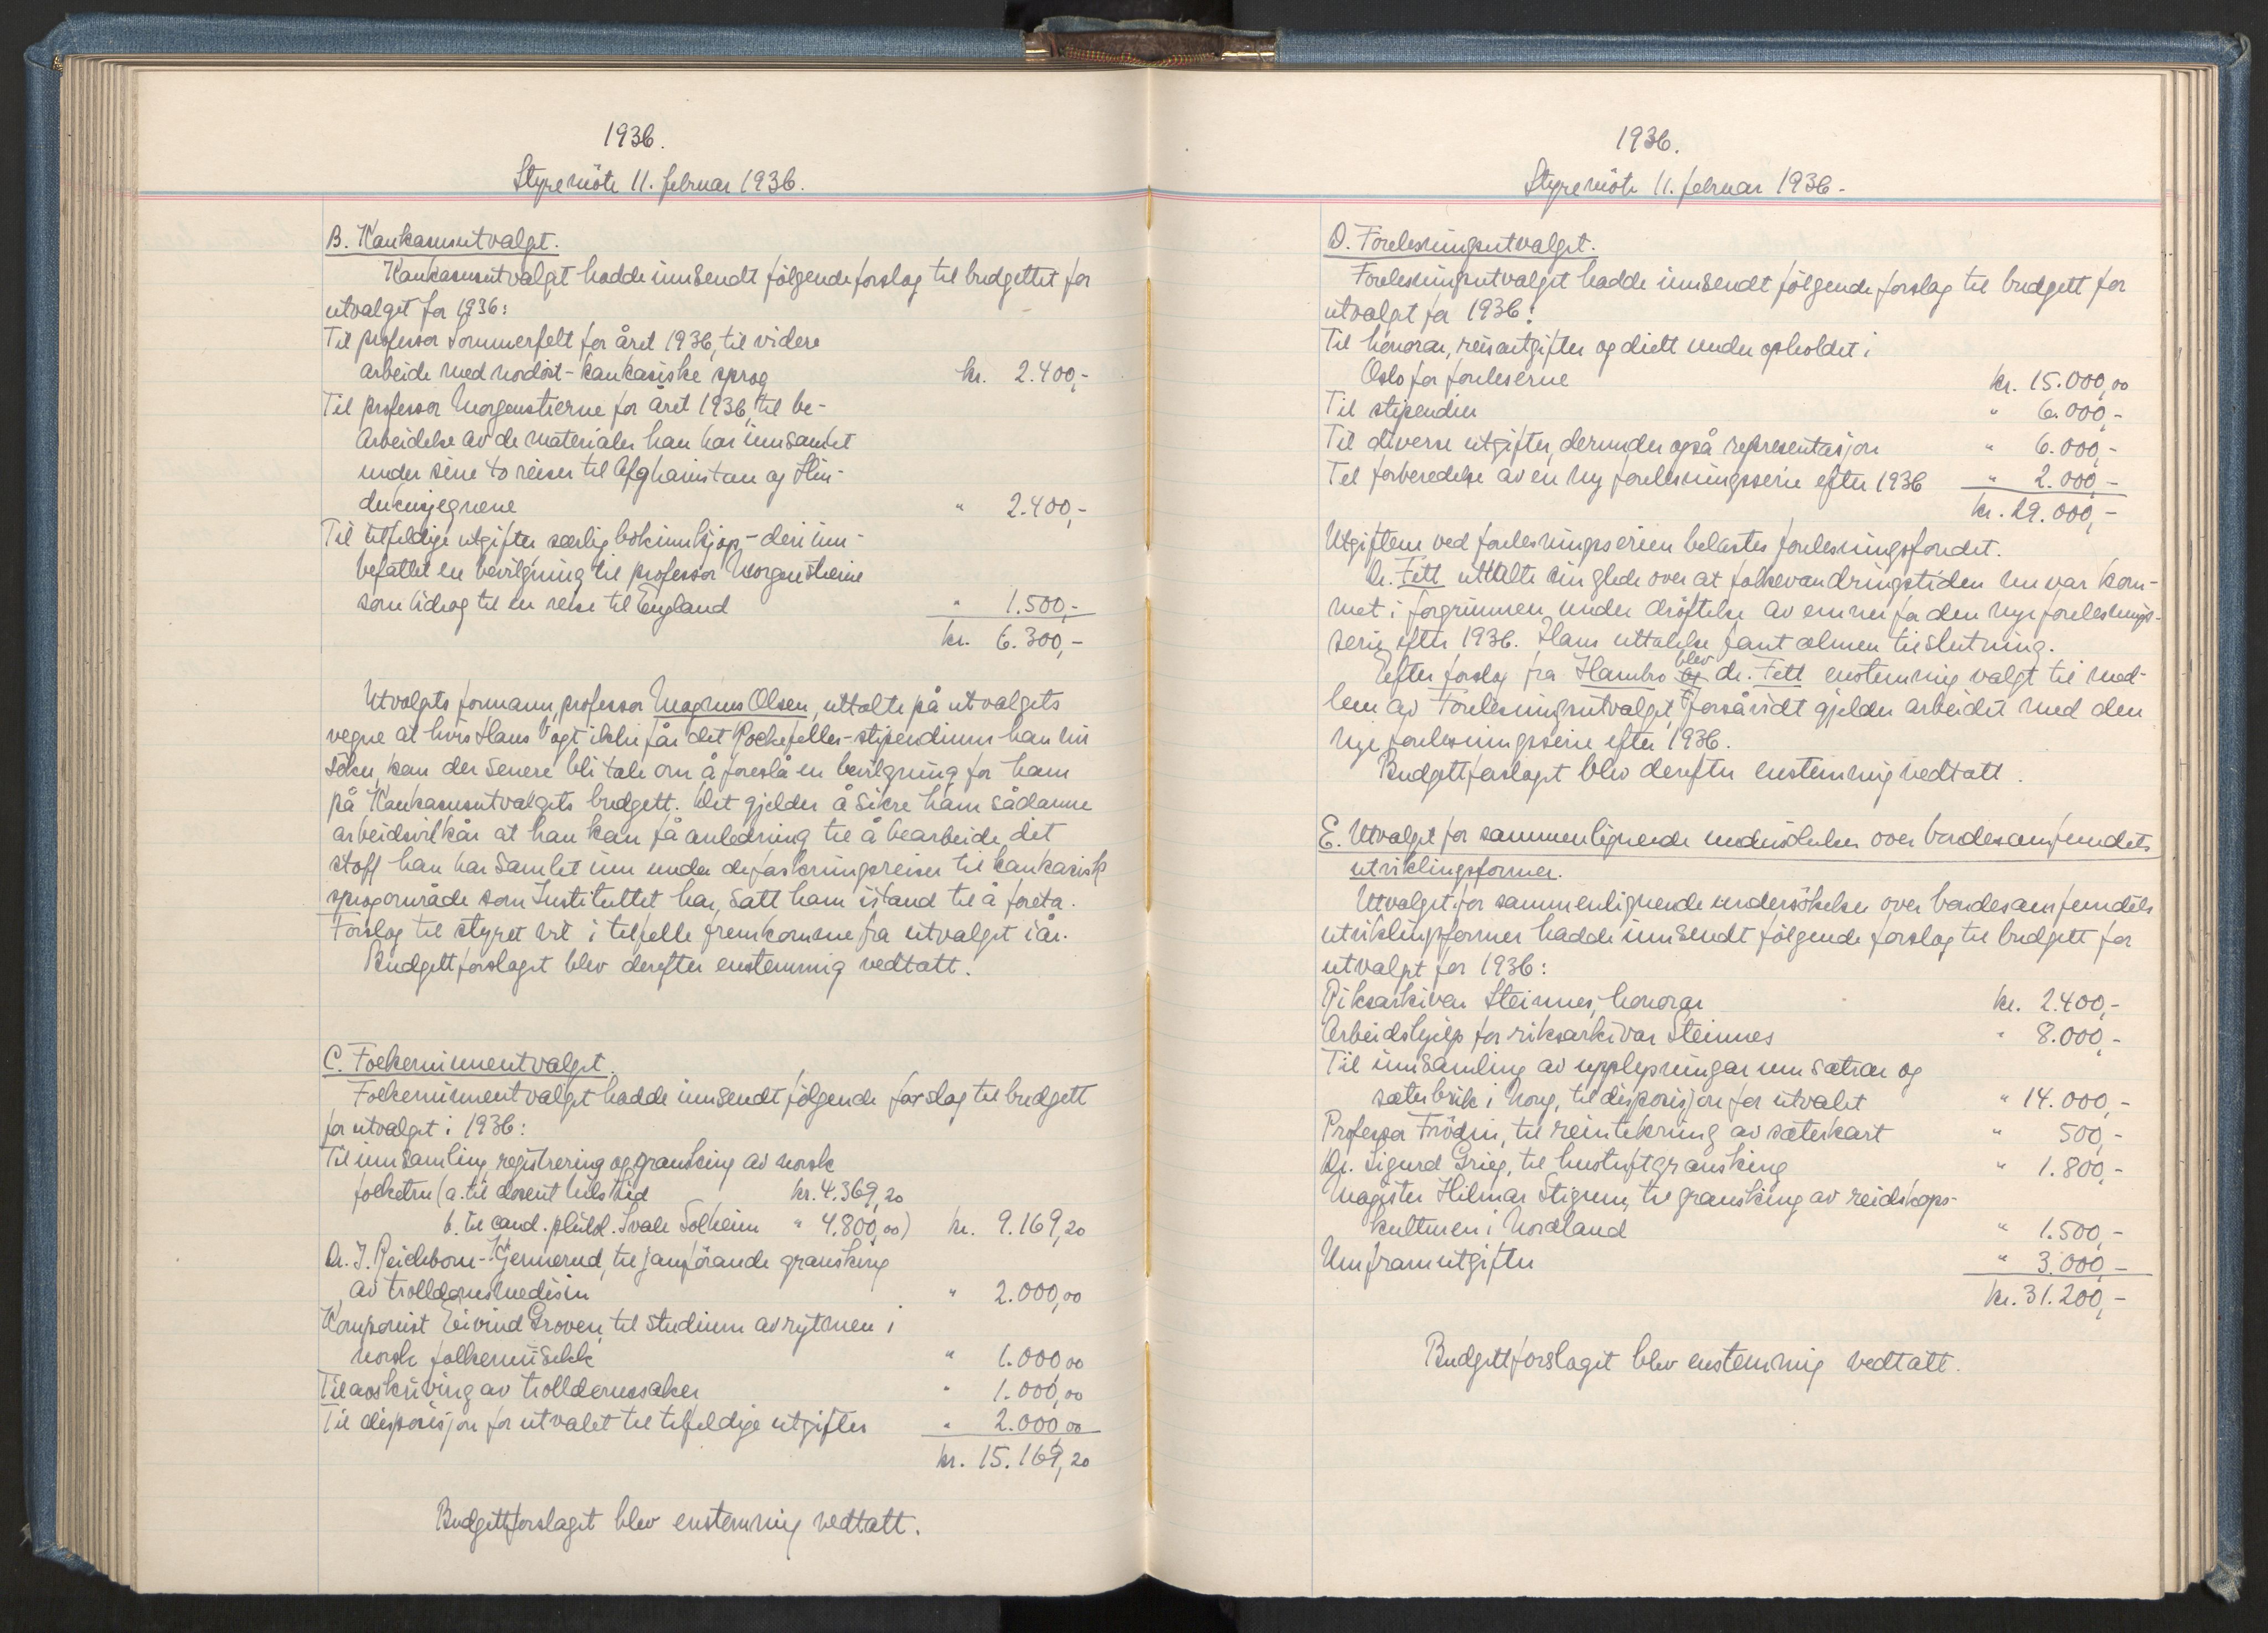 1936.
Styremöte 11. februar 1936.
B. Kaukasusutvalget.
Kaukasusutvalget hadde innsendt fölgende forslag til budgettet for
utvalget for 1936:
Til professor Sommerfelt for året 1936, til videre
arbeide med nordöst-kaukasiske sprog kr. 2.400,-
Til professor Morgenstierne for året 1936, til be-
arbeidelse av de materialer han har innsamlet
under sine to reiser til Afghanistan og Hin-
dukusjegnene " 2.400,-
Til tilfeldige utgifter særlig bokinnkjøp - deri inn-
befattet en bevilgning til professor Morgenstierne
som bidrag til en reise til England " 1.500,-
kr. 6.300,-
Utvalgets formann, professor Magnus Olsen, uttalte på utvalgets
vegne at hvis Hans Vogt ikke får det Rockefeller-stipendium han nu
söker, kan der senere bli tale om å foreslå en bevilgning for ham
på Kaukasusutvalgets budgett. Det gjelder å sikre ham sådanne
arbeidsvilkår at han kan få anledning til å bearbeide det
stoff han har samlet inn under de forskningsreiser til kaukasisk
sprogområde som Instituttet har satt ham istand til å foreta.
Forslag til styret vil i tilfelle fremkomme fra utvalget iår.
Budgettforslaget blev derefter enstemmig vedtatt.
C. Folkeminneutvalget.
Folkeminneutvalget hadde innsendt fölgende forslag til budgett
for utvalget i 1936:
Til innsamling, registrering og gransking av norsk
folketru (a. til dosent Lid kr. 4.369,20
b. til cand. philol. Svale Solheim " 4.800,00) kr. 9.169,20
Dr. I. Reichborn-Kjennerud, til jamförande gransking
av trolldomsmedisin " 2.000,00
Komponist Eivind Groven, til studium av rytmen i
norsk folkemusikk " 1.000,00
Til avskriving av trolldomssaker " 1.000,00
Til disposisjon for utvalet til tilfeldige utgifter " 2.000,00
kr. 15.169,20
Budgettforslaget blev enstemmig vedtatt.
1936.
Styremöte 11. februar 1936.
D. Forelesningsutvalget.
Forelesningsutvalget hadde innsendt fölgende forslag til budgett for
utvalget for 1936:
Til honorar, reiseutgifter og diett under opholdet i
Oslo for foreleserne kr. 15.000,00
Til stipendier " 6.000,-
Til diverse utgifter, derunder også representasjon " 6.000,-
Til forberedelse av en ny forelesningsserie efter 1936 " 2.000,-
kr. 29.000,-
Utgiftene ved forelesningsserien belastes forelesningsfondet.
Dr. Fett uttalte sin glede over at folkevandringstiden nu var kom-
met i forgrunnen under dröftelse av emner for den nye forelesnings-
serie efter 1936. Hans uttalelse fant almen tilslutning.
Efter forslag fra Hambro blev dr. Fett enstemmig valgt til med-
lem av Forelesningsutvalget, forsåvidt gjelder arbeidet med den
nye forelesningsserie efter 1936.
Budgettforslaget blev derefter enstemmig vedtatt.
E. Utvalget for sammenlignende undersökelser over bondesamfundets
utviklingsformer.
Utvalget for sammenlignende undersökelser over bondesamfundets
utviklingsformer hadde innsendt fölgende forslag til budgett for
utvalget for 1936:
Riksarkivar Steinnes, honorar kr. 2.400,-
Arbeidshjelp for riksarkivar Steinnes " 8.000,-
Til innsamling av upplysningar um sætrar og
sæterbruk i Noreg, til disposisjon for utvalet " 14.000,-
Professor Frödin, til reintekning av sæterkart " 500,-
Dr. Sigurd Grieg, til hustuftgransking " 1.800,-
Magister Hilmar Stigum, til gransking av reidskaps-
kulturen i Nordland " 1.500,-
Umframutgifter " 3.000,-
kr. 31.200,-
Budgettforslaget blev enstemmig vedtatt.